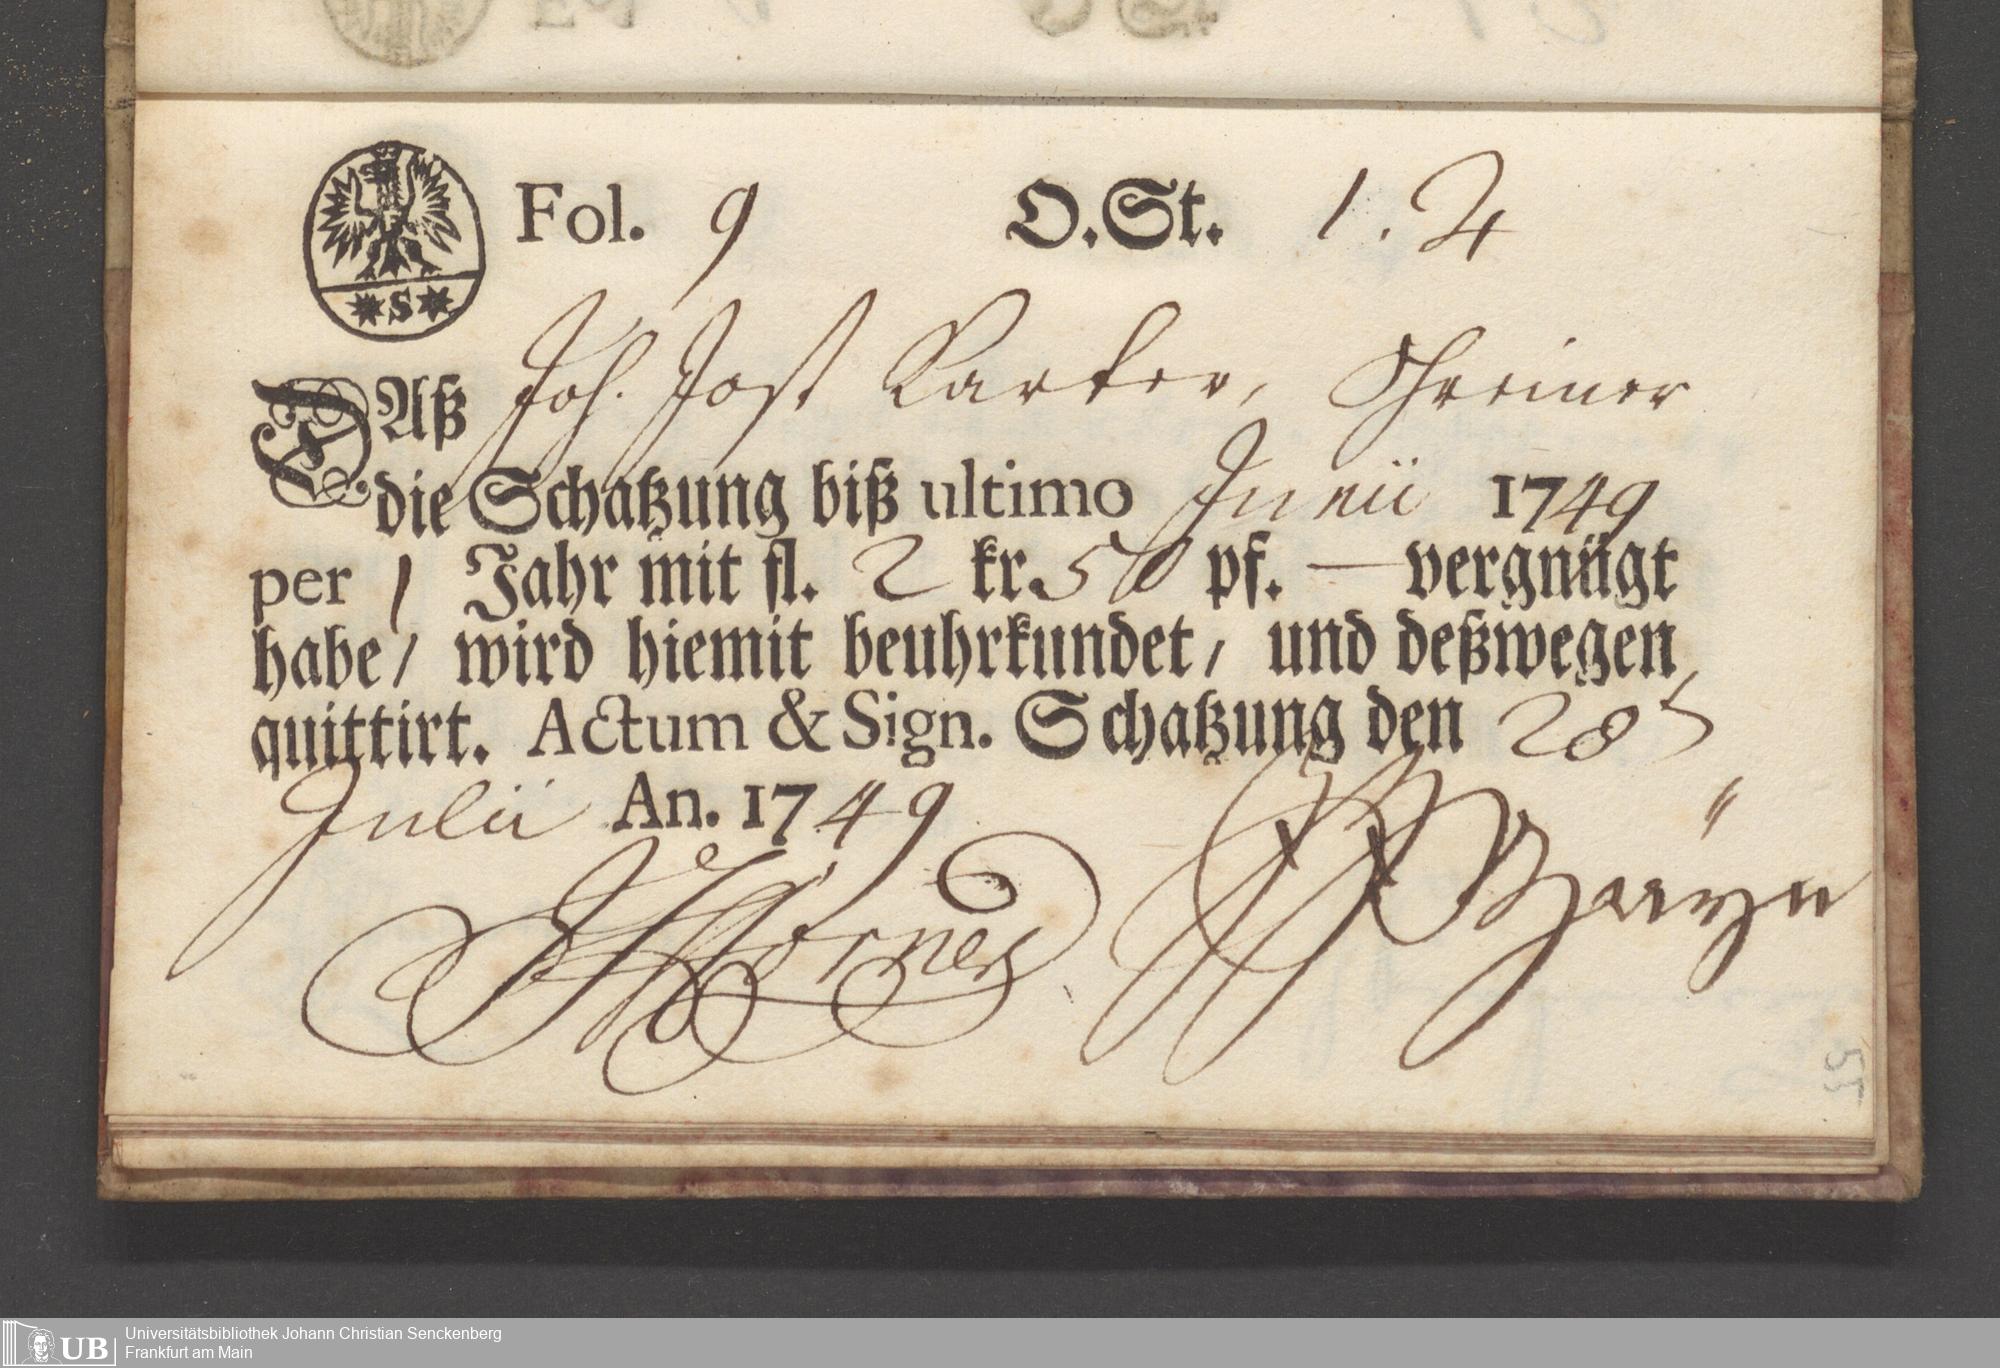 Fol. 9 O.St. 1. 4
S
DAß Joh. Jost Karker, Schreiner
die Schatzung biß ultimo Junii 1749
per 1 Jahr mit fl. 2 kr. 50 pf. — vergnügt
habe/ wird hiemit beuhrkundet/ und deßwegen
quittirt. Actum & Sign. Schatzung den 28
Julii An. 1749
UB Universitätsbibliothek Johann Christian Senckenberg
Frankfurt am Main